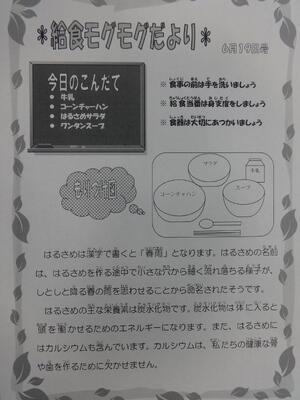 給食モグモグだより
6月19日号
今日のこんだて
● 牛乳
● コーンチャーハン
● はるさめサラダ
● ワンタンスープ
※ 食事の前は手を洗いましょう
※ 給食当番は身支度をしましょう
※ 食器は大切にあつかいましょう
もりつけ図
サラダ
牛乳
コーンチャーハン
スープ
はるさめは漢字で書くと「春雨」となります。はるさめの名前
は、はるさめを作る途中で小さな穴から細く流れ落ちる様子が、
しとしと降る春の雨を思わせることから命名されたそうです。
はるさめの主な栄養素は炭水化物です。炭水化物は体に入ると
頭を働かせるためのエネルギーになります。また、はるさめに
はカルシウムも含んでいます。カルシウムは、私たちの健康な骨
や歯を作るために欠かせません。